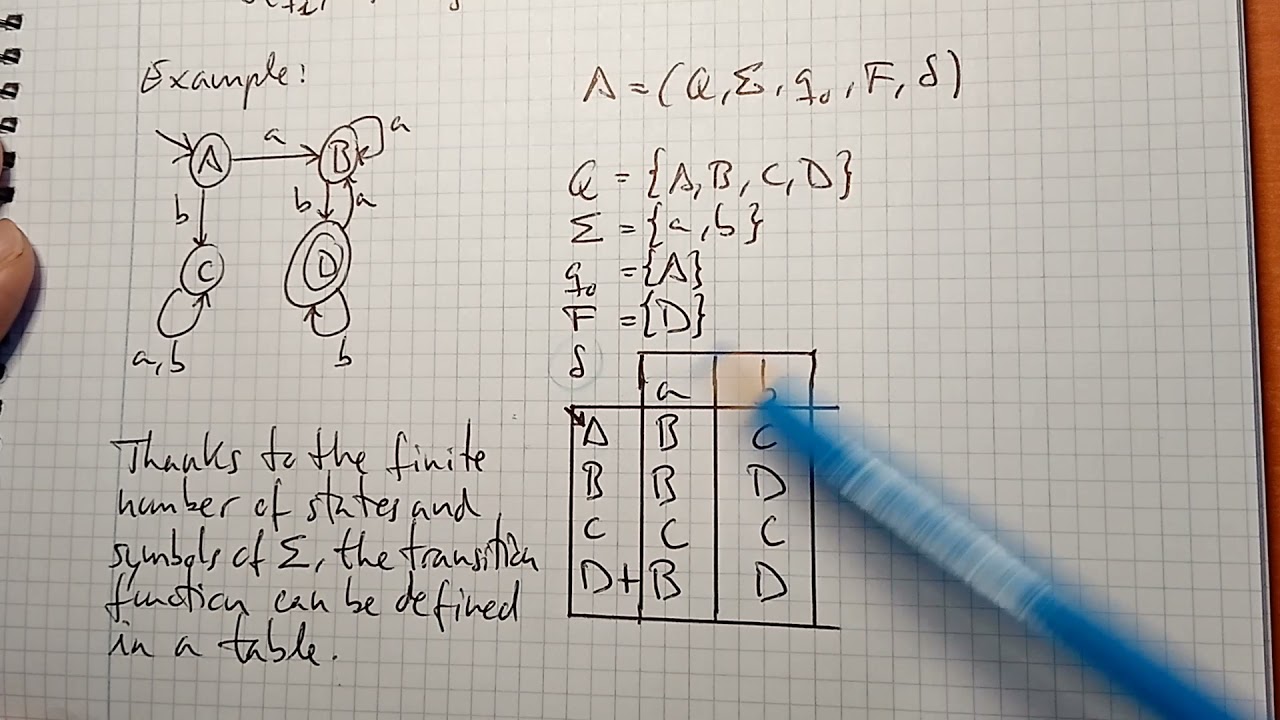 Example:
A = (Q, Σ, q₀, F, δ)
a
a
A
B
b
b
a
C
D
a,b
b
Q = {A, B, C, D}
Σ = {a, b}
q₀ = {A}
F = {D}
δ
a
A B C
B B D
C C C
D+ B D
Thanks to the finite
number of states and
symbols of Σ, the transition
function can be defined
in a table.